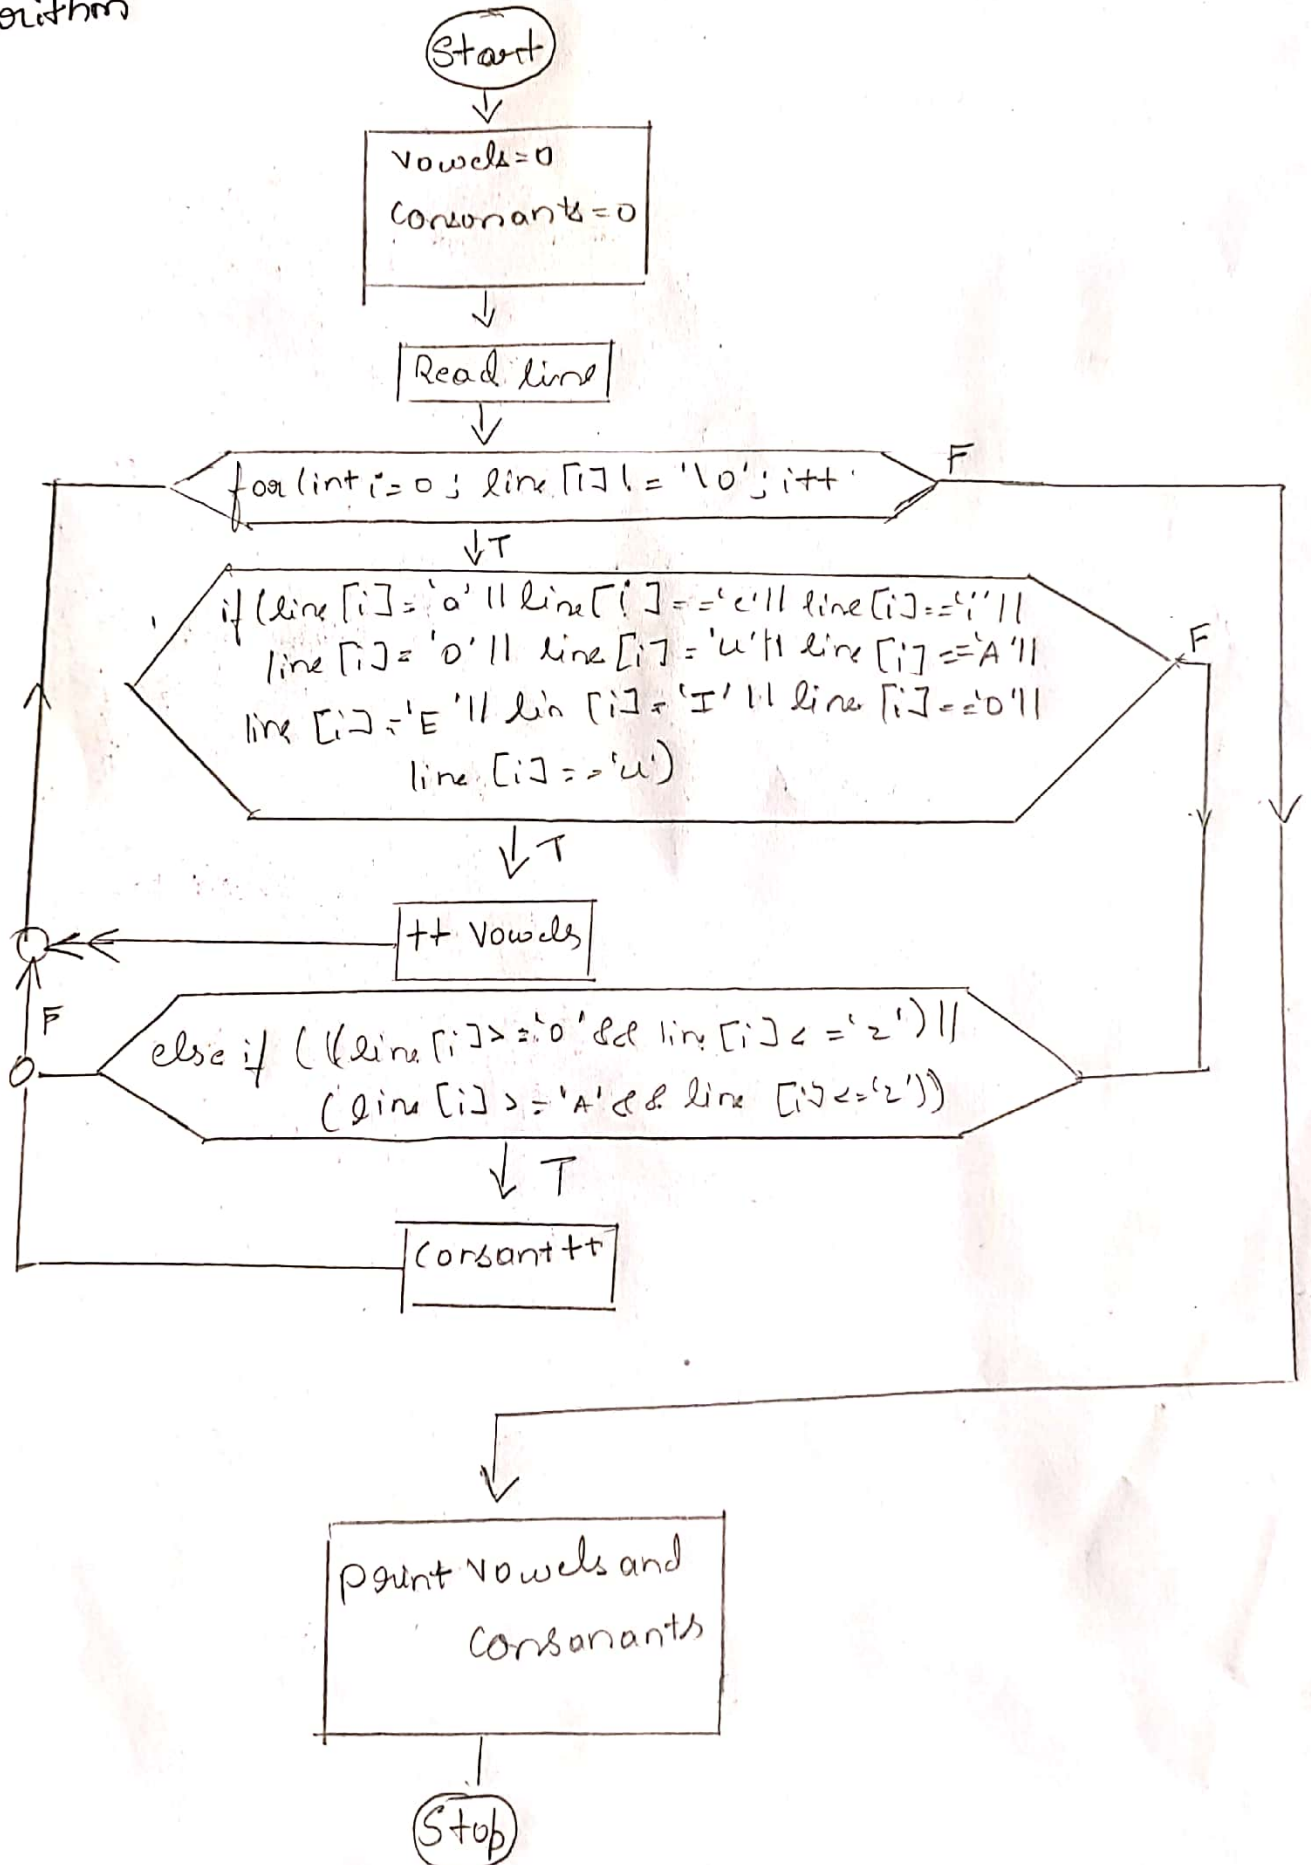 orithm
Start
Vowels=0
Consonants=0
Read line
for (int i=0; line[i]!='\0'; i++
F
T
if (line[i]='a' || line[i]=='e' || line[i]=='i' ||
line[i]='o' || line[i]='u' || line[i]=='A' ||
line[i]='E' || lin[i]='I' || line[i]=='O' ||
line[i]=='u')
F
T
++ Vowels
F
else if ((line[i]>='o' && line[i]<='z') ||
(line[i]>='A' && line[i]<='z'))
T
Corsant++
print vowels and
Consanants
Stop